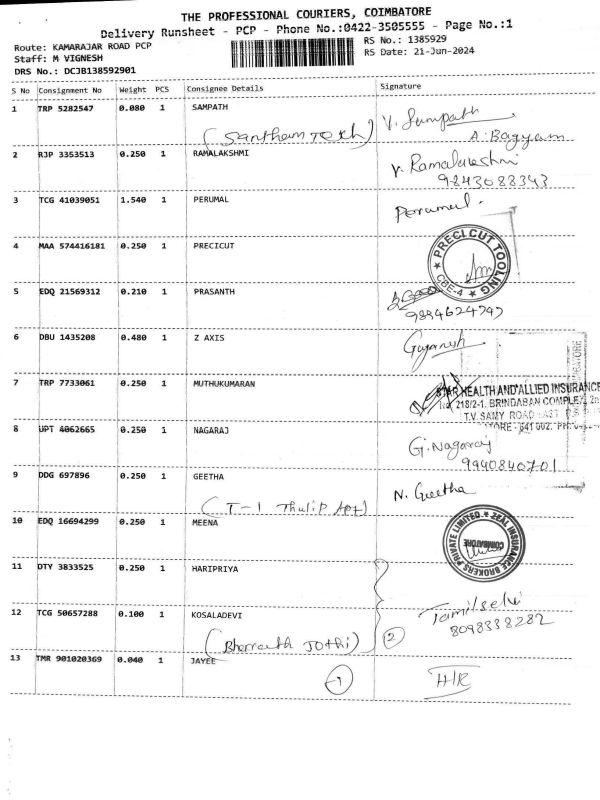 THE PROFESSIONAL COURIERS, COIMBATORE
Delivery Runsheet - PCP - Phone No.:0422-3505555 - Page No.:1
Route: KAMARAJAR ROAD PCP
RS No.: 1385929
Staff: M VIGNESH
RS Date: 21-Jun-2024
DRS No.: DCJB138592901
S No Consignment No Weight PCS Consignee Details Signature
1 TRP 5282547 0.080 1 SAMPATH V. Sampath
(Santham Jothi) A. Bagyam
2 RJP 3353513 0.250 1 RAMALAKSHMI V. Ramalakshmi
9843088343
3 TCG 41039051 1.540 1 PERUMAL Perumal.
4 MAA 574416181 0.250 1 PRECICUT PRECI CUT TOOLING CBE-4
5 EDQ 21569312 0.210 1 PRASANTH
9894624747
6 DBU 1435208 0.480 1 Z AXIS
7 TRP 7733061 0.250 1 MUTHUKUMARAN STAR HEALTH AND ALLIED INSURANCE
No. 218/2-1, BRINDABAN COMPLEX, 2n
T.V. SAMY ROAD EAST
8 UPT 4062665 0.250 1 NAGARAJ G. Nagaraj
9940840701
9 DDG 697896 0.250 1 GEETHA N. Geetha
(T-1 Thulip Apt)
10 EDQ 16694299 0.250 1 MEENA ZEAL INSURANCE BROKERS PRIVATE LIMITED COIMBATORE
11 DTY 3833525 0.250 1 HARIPRIYA
12 TCG 50657288 0.100 1 KOSALADEVI Tamilselvi
8098338282
Jothi) 2
13 TMR 901020369 0.040 1 JAYEE